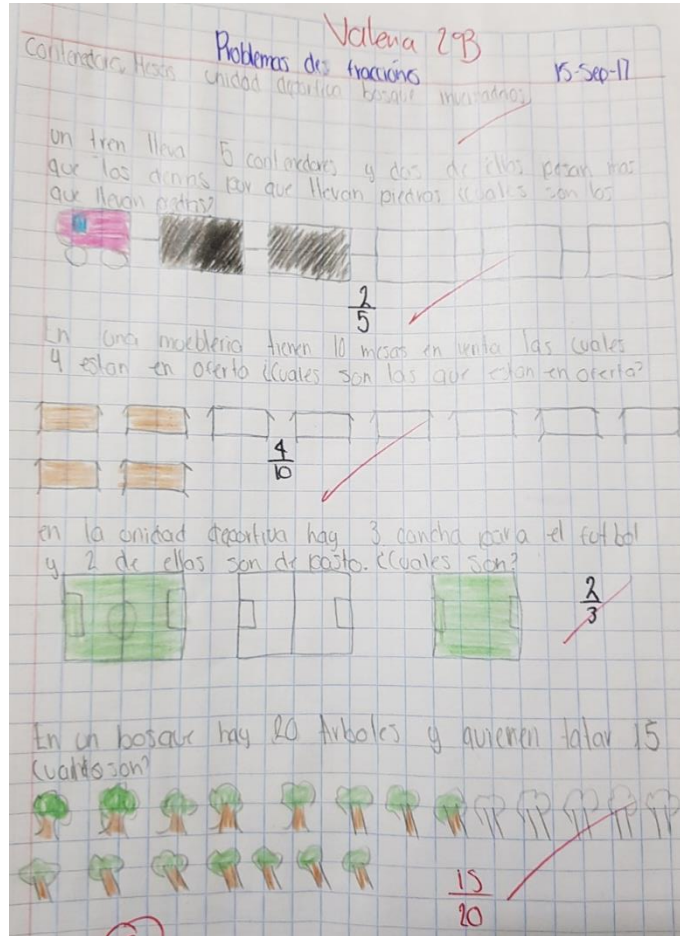 Valeria 2°B
Problemas de fracciónes
15-Sep-17
Contenedores Mesas unidad deportiva bosque
un tren lleva 5 contenedores y dos de ellos pesan mas
que los demas por que llevan piedras ¿cuales son los
que llevan
2/5
En una moebleria tienen 10 mesas en venta las cuales
4 estan en oferto ¿Cuales son las que estan en oferta?
4/10
en la unidad deportiva hay 3 cancha para el futbol
y 2 de ellos son de pasto. ¿Cuales son?
2/3
En un bosque hay 20 Arboles y quieren talar 15
son?
15/20